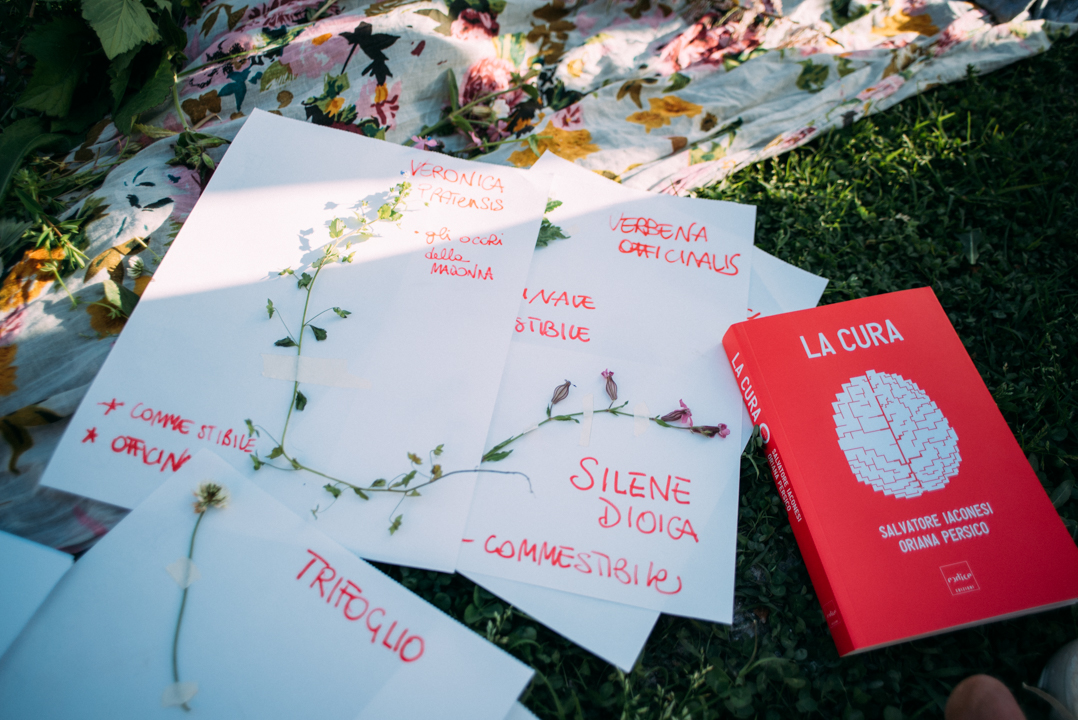 VERONICA
PRATENSIS
- gli occhi
della
MADONNA
* COMMESTIBILE
* OFFICIN
VERBENA
OFFICINALIS
INALE
STIBILE
SILENE
DIOICA
- COMMESTIBILE
TRIFOGLIO
LA CURA
SALVATORE IACONESI
ORIANA PERSICO
codice
EDIZIONI
LA CURA
SALVATORE IACONESI
ORIANA PERSICO